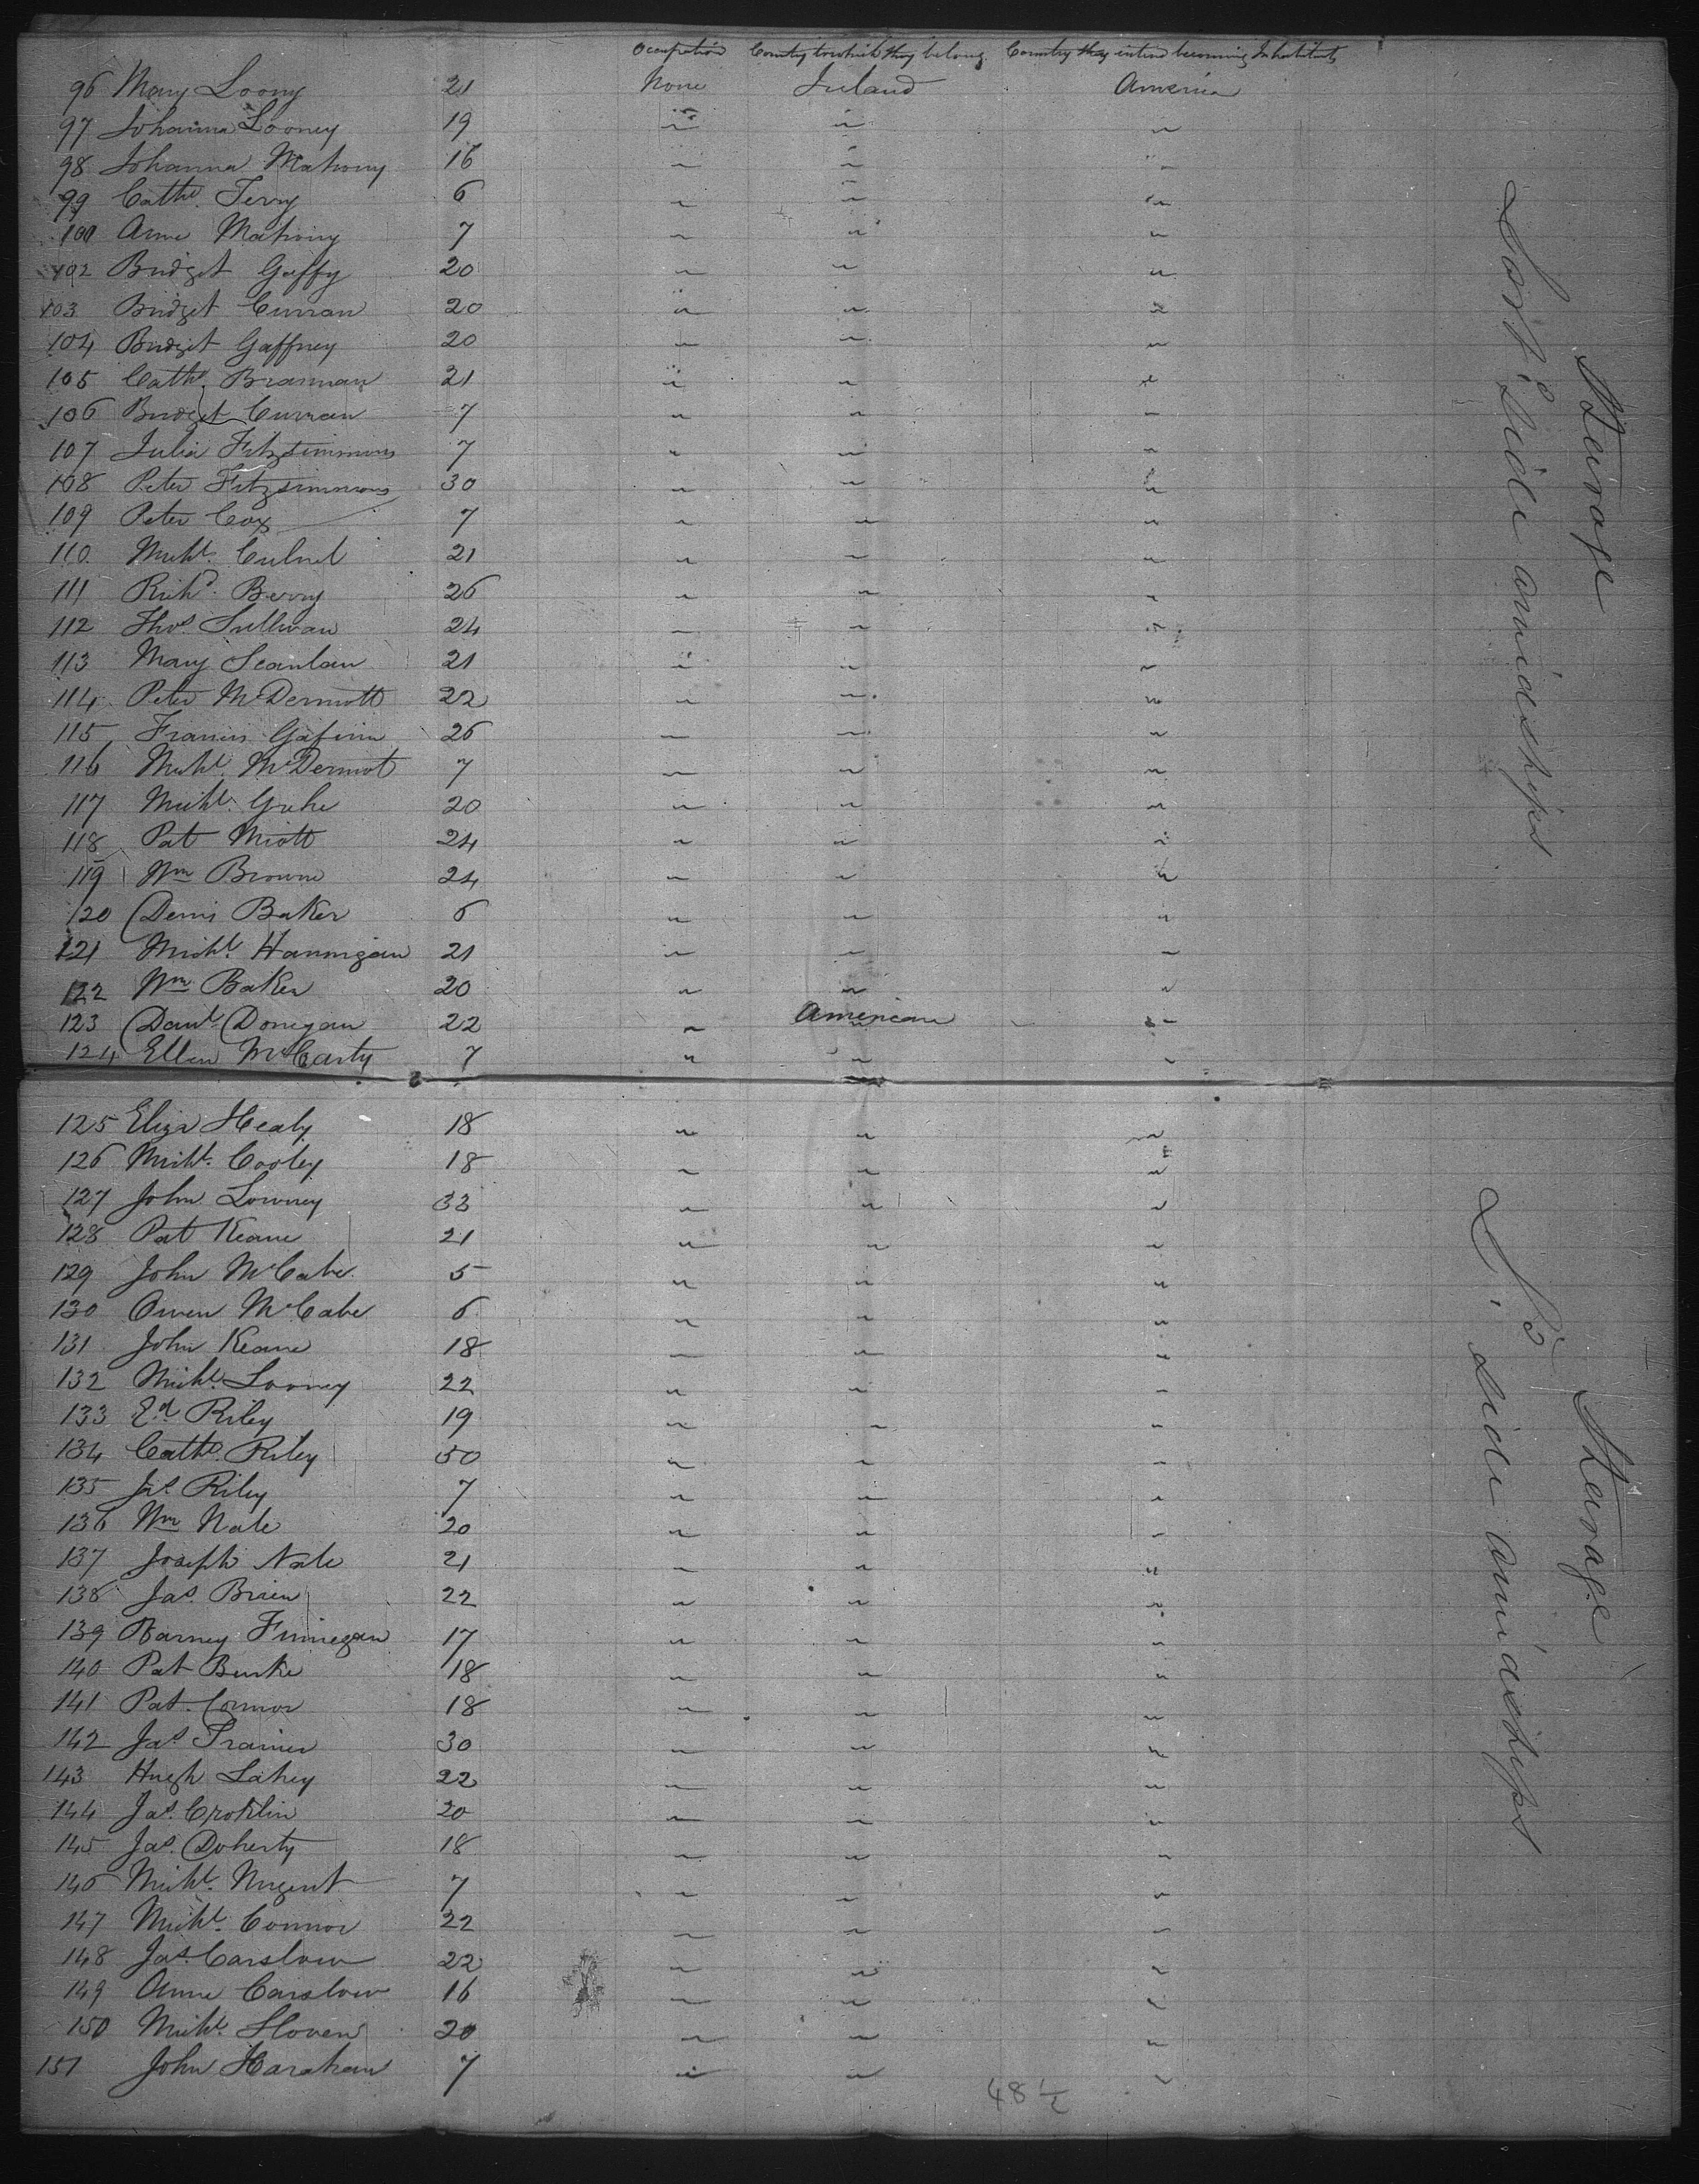 Occupation Country to which they belong. Country they intend becoming Inhabitants
96 Mary Loony 21 None Ireland America
97 Johanna Looney 19 " " "
98 Johanna Mahony 16 " " "
99 Cathe. Terry 6 " " "
100 Anne Mahony 7 " " "
102 Bridget Gaffy 20 " " "
103 Bridget Curran 20 " " "
104 Bridget Gaffney 20 " " "
105 Cathe. Brannan 21 " " "
106 Bridget Curran 7 " " "
107 Julia Fitzsimmons 7 " " "
108 Peter Fitzsimmons 30 " " "
109 Peter Cox 7 " " "
110 Michl. 21 " " "
111 Richd. Berry 26 " " "
112 Thos. Sullivan 24 " " "
113 Mary Scanlan 21 " " "
114 Peter McDermott 22 " " "
115 Francis 26 " " "
116 Michl. McDermot 7 " " "
117 Michl. 20 " " "
118 Pat Miott 24 " " "
119 Wm Browne 24 " " "
120 Denis Baker 6 " " "
121 Michl. Hannigan 21 " " "
122 Wm Baker 20 " " "
123 Danl. Donegan 22 " American "
124 Ellen McCarty 7 " " "
125 Eliza Healy 18 " " "
126 Michl. Cooley 18 " " "
127 John Lowney 33 " " "
128 Pat Keane 21 " " "
129 John McCabe 5 " " "
130 Owen McCabe 6 " " "
131 John Keane 18 " " "
132 Michl. Looney 22 " " "
133 Ed Riley 19 " " "
134 Cathe. Riley 50 " " "
135 Jas. Riley 7 " " "
136 Wm Nale 20 " " "
137 Joseph Nale 21 " " "
138 Jas. Brien 22 " " "
139 Barney Finnegan 17 " " "
140 Pat Burke 18 " " "
141 Pat Connor 18 " " "
142 Jas. Trainer 30 " " "
143 Hugh Lahey 22 " " "
144 Jas. Croklin 20 " " "
145 Jas. Doherty 18 " " "
146 Michl. Nugent 7 " " "
147 Michl. Connor 22 " " "
148 Jas. Carslow 22 " " "
149 Anne Carslow 16 " " "
150 Michl. Sloven 20 " " "
151 John Harahan 7 " " "
48 1/2
Steerage
side amidships
Steerage
side amidships